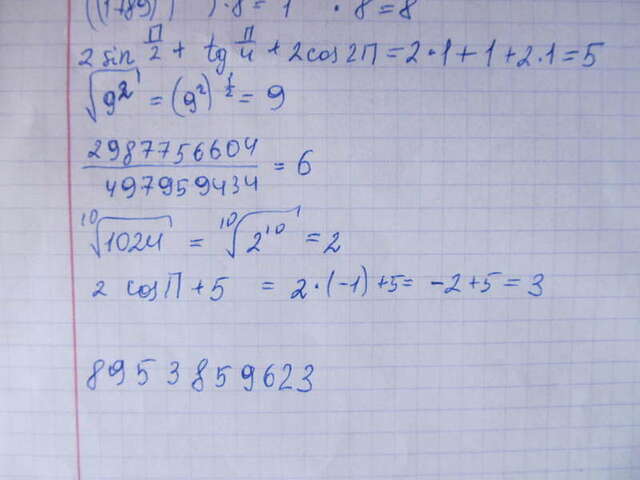 ((1+89)) · 8 = 1 · 8 = 8
2 sin П/2 + tg П/4 + 2 cos 2П = 2·1 + 1 + 2·1 = 5
√9² = (9²)^½ = 9
2987756604 / 497959434 = 6
¹⁰√1024 = ¹⁰√2¹⁰ = 2
2 cos П + 5 = 2·(-1) + 5 = -2 + 5 = 3
8953859623